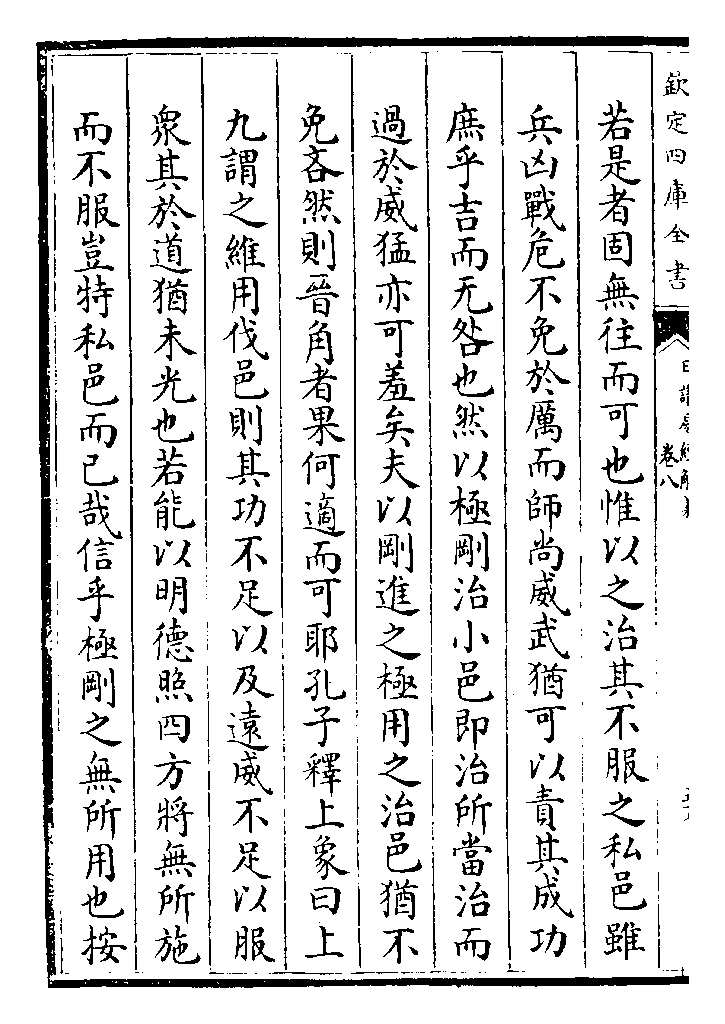 欽定四庫全書
卷八
若是者固無往而可也惟以之治其不服之私邑雖
兵凶戰危不免於厲而師尚威武猶可以責其成功
庶乎吉而无咎也然以極剛治小邑即治所當治而
過於威猛亦可羞矣夫以剛進之極用之治邑猶不
免吝然則晉角者果何適而可耶孔子釋上象曰上
九謂之維用伐邑則其功不足以及遠威不足以服
衆其於道猶未光也若能以明德照四方將無所施
而不服豈特私邑而已哉信乎極剛之無所用也按